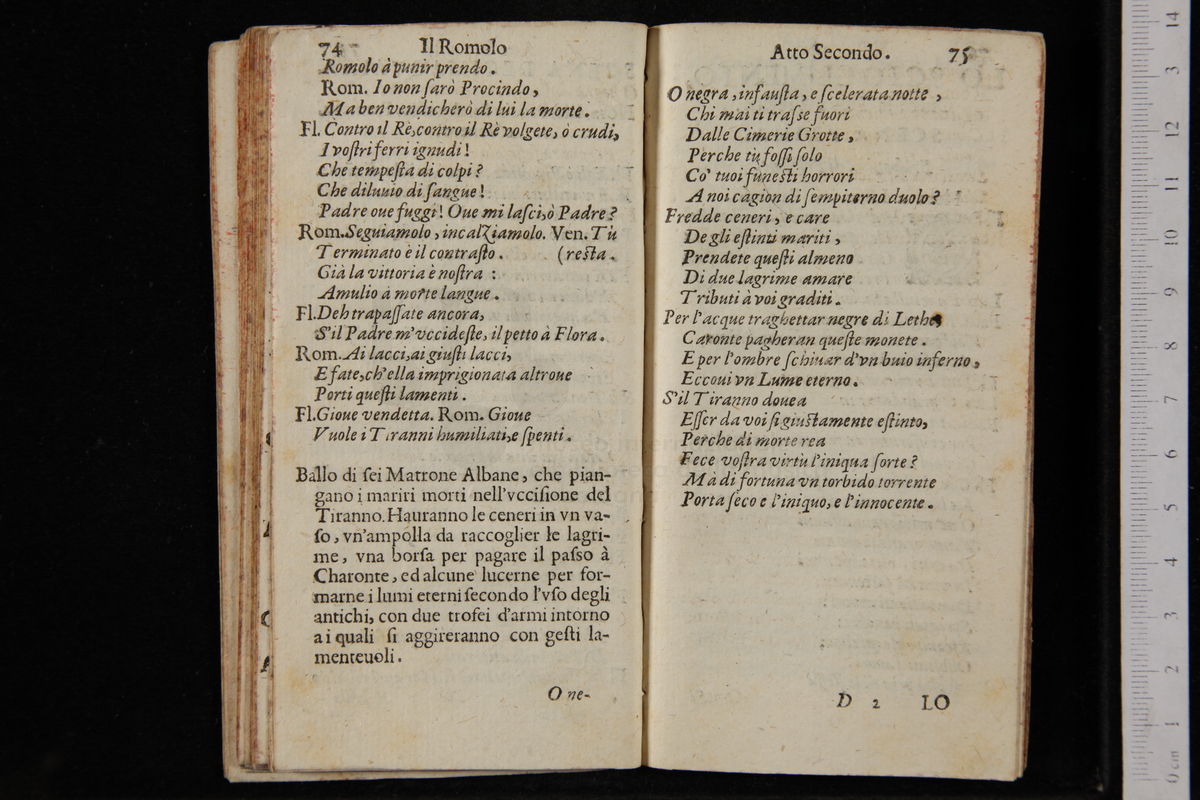 74 Il Romolo
Romolo à punir prendo.
Rom. Io non ſarò Procindo,
Ma ben vendicherò di lui la morte.
Fl. Contro il Rè, contro il Rè volgete, ò crudi,
I voſtri ferri ignudi!
Che tempeſta di colpi?
Che diluuio di ſangue!
Padre oue fuggi! Oue mi laſci, ò Padre?
Rom. Seguiamolo, incalziamolo. Ven. Tù
Terminato è il contraſto. (reſta.
Già la vittoria è noſtra:
Amulio à morte langue.
Fl. Deh trapaſſate ancora,
S'il Padre m'vccideſte, il petto à Flora.
Rom. Ai lacci, ai giuſti lacci,
E fate, ch'ella imprigionata altroue
Porti queſti lamenti.
Fl. Gioue vendetta. Rom. Gioue
Vuole i Tiranni humiliati, e ſpenti.
Ballo di ſei Matrone Albane, che pian-
gano i mariri morti nell'vcciſione del
Tiranno. Hauranno le ceneri in vn va-
ſo, vn'ampolla da raccoglier le lagri-
me, vna borſa per pagare il paſso à
Charonte, ed alcune lucerne per for-
marne i lumi eterni ſecondo l'vſo degli
antichi, con due trofei d'armi intorno
a i quali ſi aggireranno con geſti la-
menteuoli.
O ne-
Atto Secondo. 75
O negra, infauſta, e ſcelerata notte,
Chi mai ti traſse fuori
Dalle Cimerie Grotte,
Perche tù foſſi ſolo
Co' tuoi funeſti horrori
A noi cagion di ſempiterno duolo?
Fredde ceneri, e care
De gli eſtinti mariti,
Prendete queſti almeno
Di due lagrime amare
Tributi à voi graditi.
Per l'acque traghettar negre di Lethe
Caronte pagheran queſte monete.
E per l'ombre ſchiuar d'vn buio inferno,
Eccoui vn Lume eterno.
S'il Tiranno douea
Eſſer da voi ſi giuſtamente eſtinto,
Perche di morte rea
Fece voſtra virtù l'iniqua ſorte?
Mà di fortuna vn torbido torrente
Porta ſeco e l'iniquo, e l'innocente.
D 2 LO
14
3
12
11
10
9
8
7
6
5
4
3
2
1
0 cm